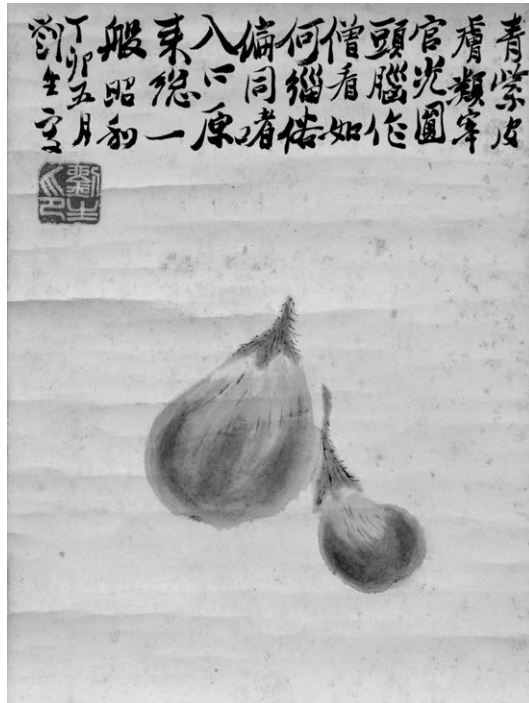 青紫皮
膚類宰
官光圓
頭腦作
僧看如
何緇俗
偏同嗜
入口原
来総一
般昭和
丁卯五月
劉生寫
劉生之印